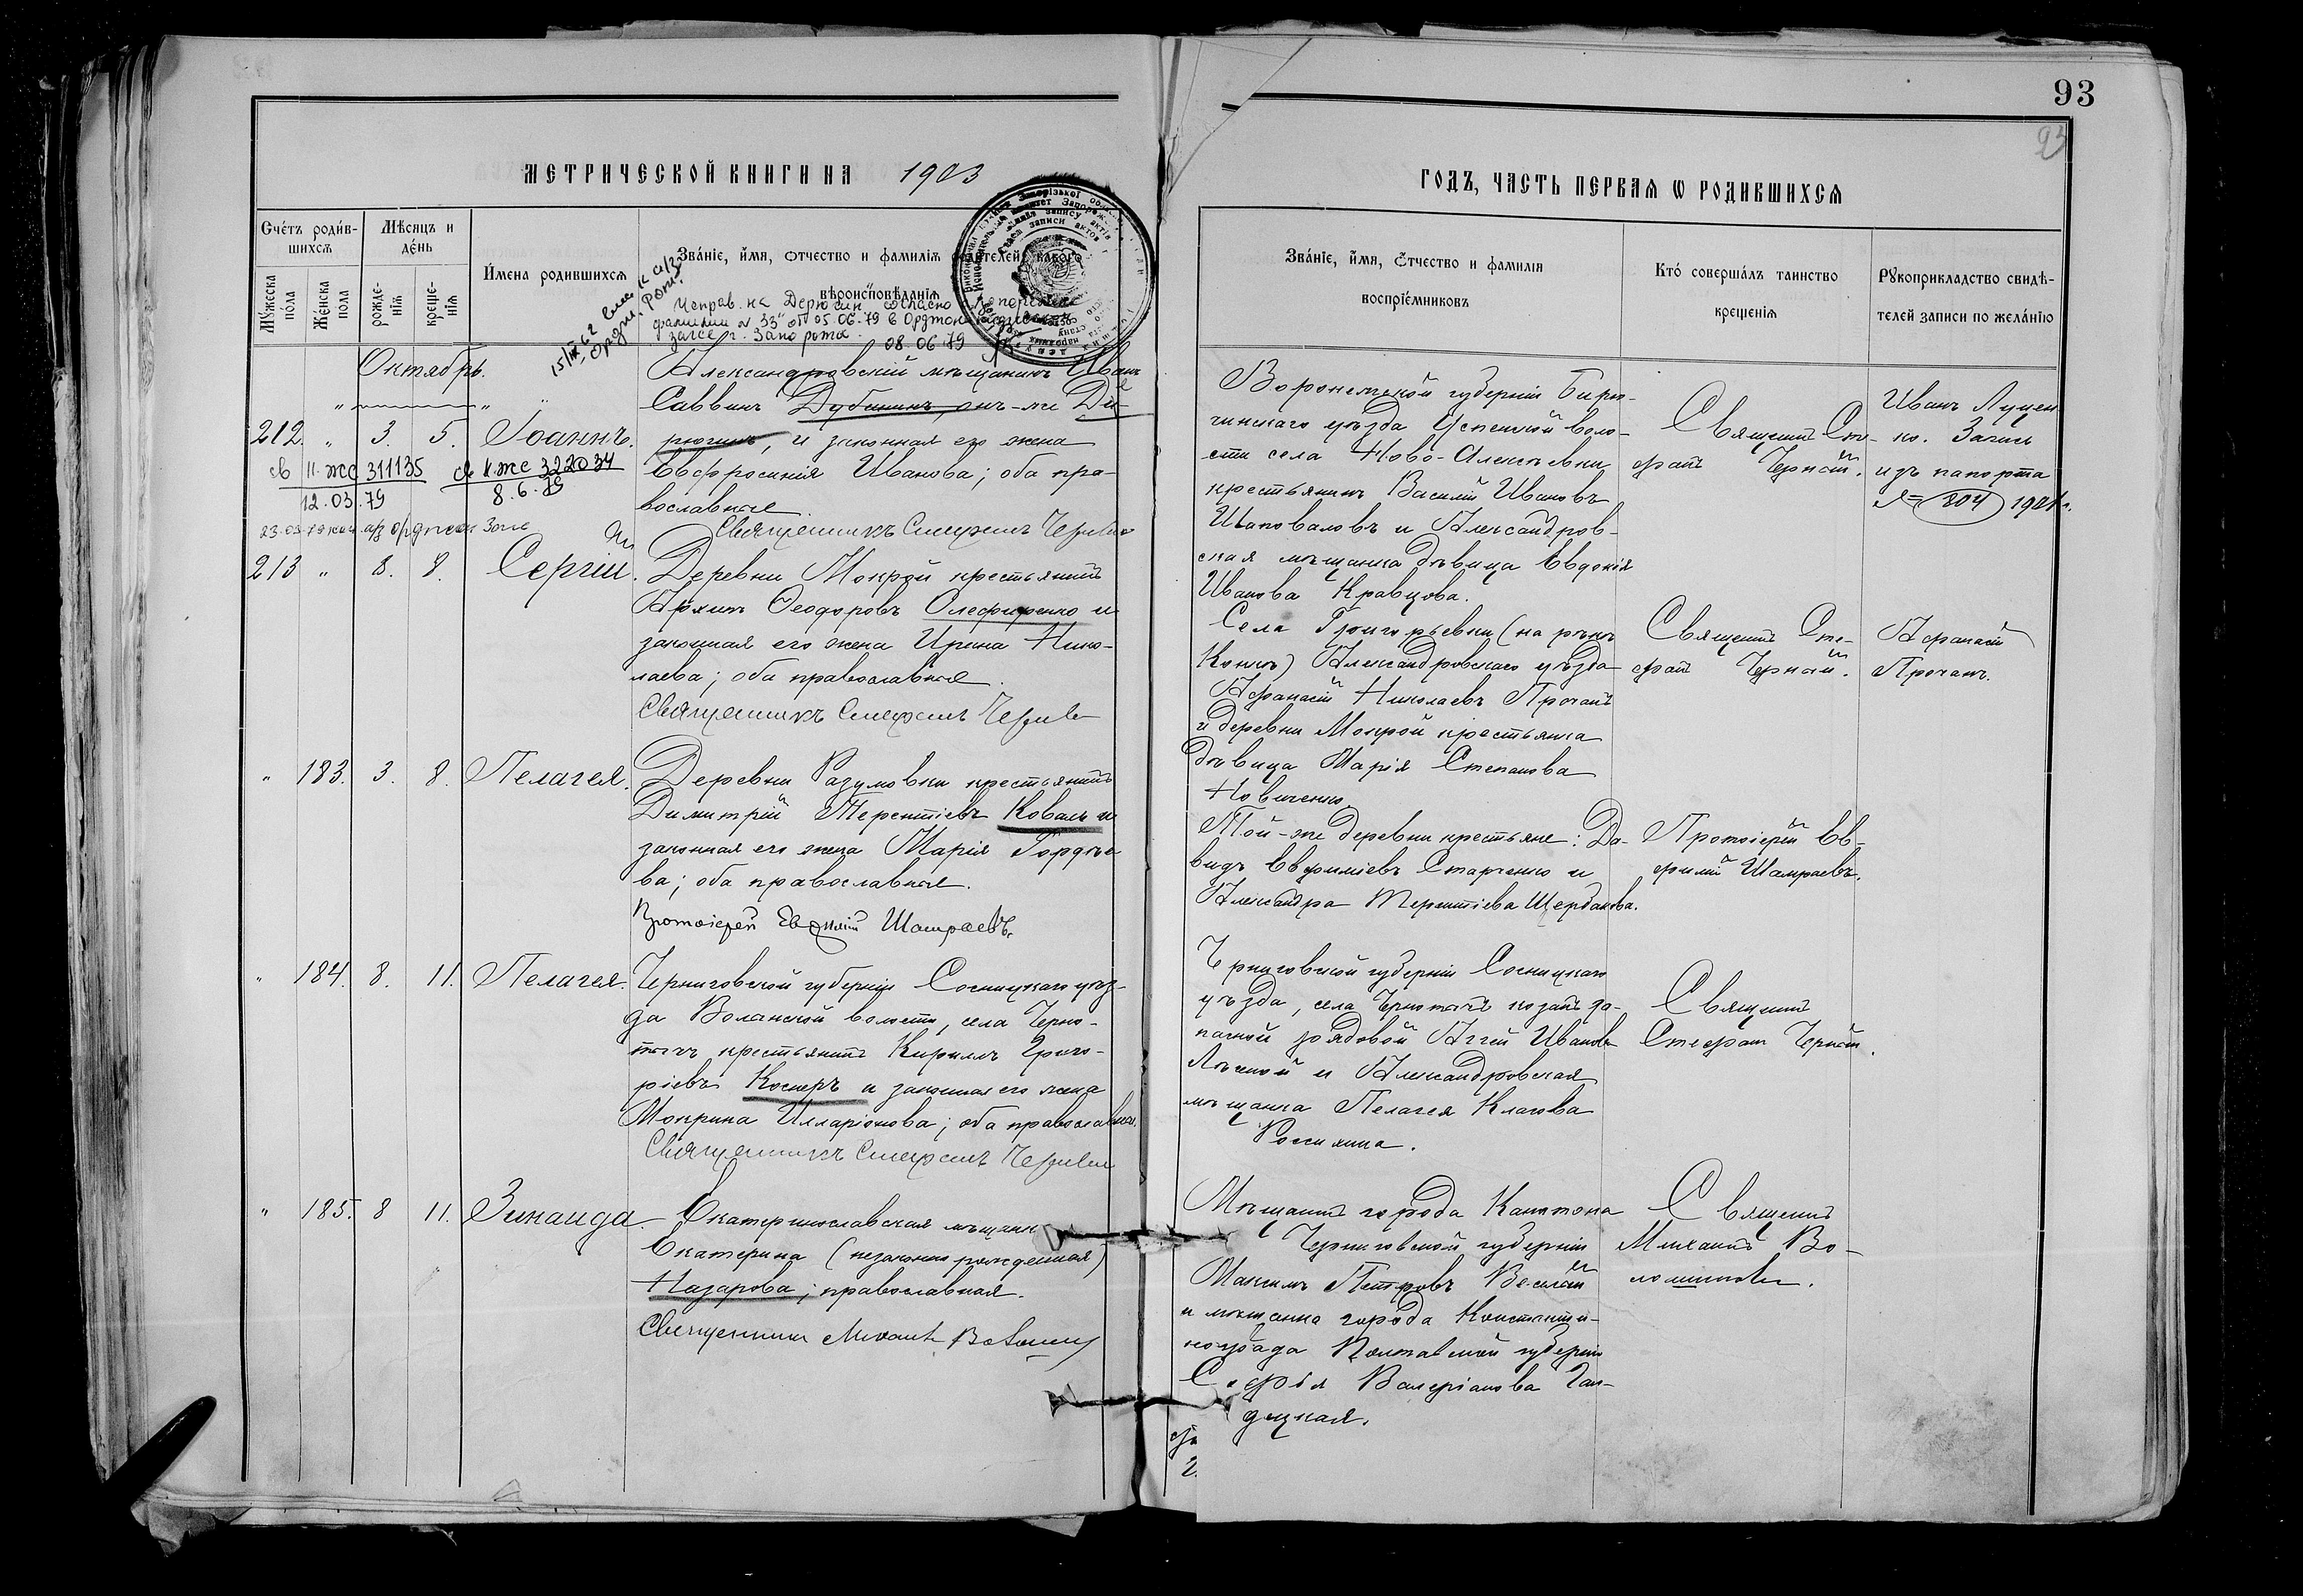 93
93
МЕТРИЧЕСКОЙ КНИГИ НА 1903
ГОДЪ, ЧАСТЬ ПЕРВАЯ Ѡ РОДИВШИХСЯ
Счéтъ роди́в-
шихсѧ
Мѣ́сяцъ и
дéнь
Му́жеска
по́ла
Же́нска
по́ла
рожде́-
нія
креще́-
нія
И́мена родившихсѧ
Зва́ніе, и́мя, о́тчество и фамилія родителей, какого
вѣроисповѣданія
Зва́ніе, и́мя, о́тчество и фамилія
воспріе́мниковъ
Кто́ соверша́лъ таинство
крещенія
Рукоприкладство свидѣ-
телей записи по жела́нію
Исправ. на Дерюгин согласно
фамилии N 33 от 05.06.79 в Орджоникидзевском
загсе г. Запорожа
08.06.79
Октябрь.
212. " 3. 5. Іоаннъ.
св II-жс 311135
12.03.79
св II-жс 322034
8.6.79
Александровскій мѣщанинъ Иванъ
Саввинъ Дубининъ, онъ-же Де-
рюгинъ, и законная его жена
Евфросинія Иванова; оба пра-
вославные.
Священникъ Стефанъ Черный
Воронежской губерніи Бирю-
чинскаго уѣзда Успенской воло-
сти села Ново-Алексѣевки
крестьянинъ Василій Ивановъ
Шаповаловъ и Александров-
ская мѣщанка дѣвица Евдокія
Иванова Кравцова.
Священ. Сте-
фанъ Черный.
Иванъ Луцен-
ко. Запись
изъ рапорта
№ 804
213 " 8. 8. Сергій.
Деревни Мокрой крестьянинъ
Архипъ Ѳеодоровъ Олефиренко и
законная его жена Ирина Нико-
лаева; оба православные.
Священникъ Стефанъ Черный
Села Григорьевки (на рѣкѣ
Конкѣ) Александровскаго уѣзда
Афанасій Николаевъ Прочанъ
и деревни Мокрой крестьянка
дѣвица Марія Степанова
Новиченко.
Священ. Сте-
фанъ Черный.
Афанасій
Прочанъ.
" 183. 3. 8. Пелагея.
Деревни Разумовки крестьянинъ
Димитрій Терентіевъ Коваль и
законная его жена Марія Гордѣе-
ва; оба православные.
Протоіерей Евфимій Шамраевъ.
Той-же деревни крестьяне: Да-
видъ Евфиміевъ Старченко и
Александра Терентіева Щербакова.
Протоіерей Ев-
фимій Шамраевъ.
" 184. 8. 11. Пелагея.
Черниговской губерніи Сосницкаго уѣз-
да Волынской волости, села Черно-
тичъ крестьянинъ Кириллъ Григо-
ріевъ Косперъ и законная его жена
Мокрина Илларіонова; оба православные.
Священникъ Стефанъ Черный
Черниговской губерніи Сосницкаго
уѣзда, села Чернотичъ козакъ за-
пасной рядовой Аггей Ивановъ
Лѣсной и Александровская
мѣщанка Пелагея
Россихина.
Священ.
Стефанъ Черный.
" 185. 8 11. Зинаида.
Екатеринославская мѣщанк
Екатерина (незаконно рожденная)
Назарова; православная.
Священникъ Михаилъ
Мѣщанинъ города
Черниговской губерніи
Максимъ Петровъ Веселый
и мѣщанка города Константи-
нограда Полтавской губерніи
Софія Валеріанова Гон-
децкая.
Священ.
Михаилъ Во-